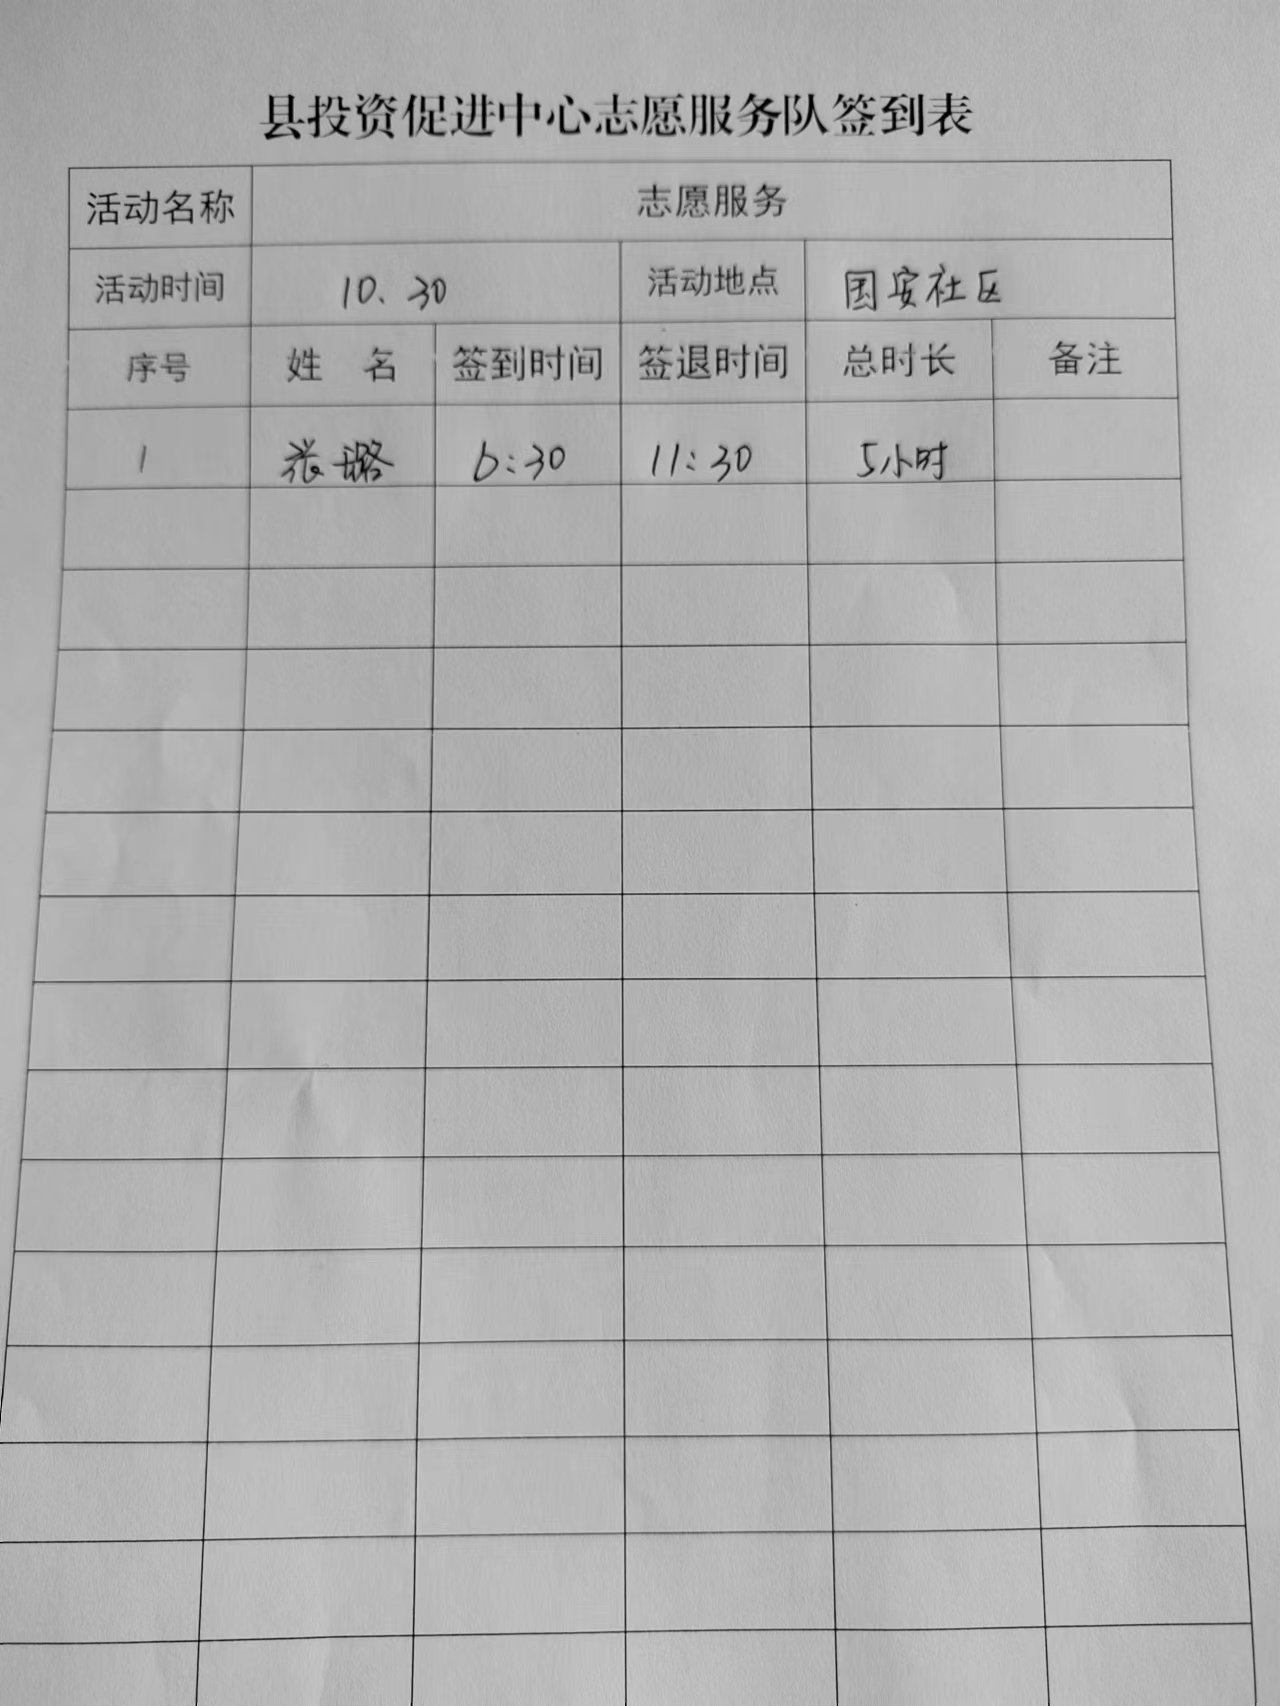 县投资促进中心志愿服务队签到表
活动名称 志愿服务
活动时间 10、30 活动地点 国安社区
序号 姓 名 签到时间 签退时间 总时长 备注
1 张璐 6:30 11:30 5小时